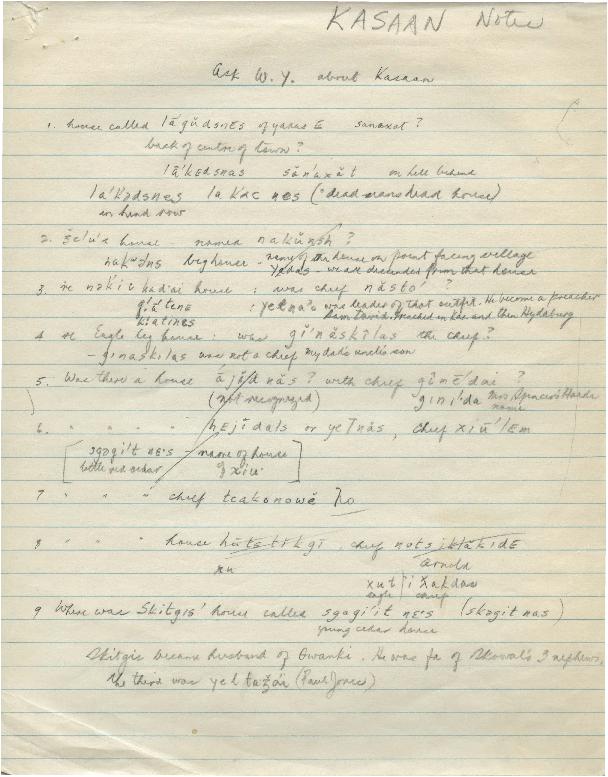 KASAAN Notes
Ask W. Y. about Kasaan
1. house called lā'gŭdsnEs of yadas E sanaxat ?
back of centre of town ?
lā'kEdsnas sănáxăt on hill behind
la'kədsnes la kac nes ("dead mans dead house)
in hand row
2. house - named nakŭnsh ?
nak'ᵊns big house - name of the house on point facing village
Yadas - we are descended from that house
3. re nakia kad'ai house : was chief năstó' ?
giatene : yełna's was leader of that outfit. He become a preacher
kiatines Sam David. Preached in Kas. and then Hydaburg
4. re Eagle leg house : was gī'năskīlas the chief?
- ginaskilas was not a chief my dad's uncle's son
5. Was there a house ájŭd năs ? with chief gīnī'dai ?
(not recognized) gini'da Mrs Spencer's Haida name
6. " " " " hEjīdals or yełnăs, chief xiŭ'lEm
[sgagi't nE's - name of house
little red cedar of xiu']
7 " " " chief tcakonowĕ No
8 " " " house hŭtstīkgī, chief notsiktăkidE
xu Arnold
xut ji Xakdas
eagle chief
9 Where was Skitgis' house called sgagi'it nE's (skagit nas)
young cedar house
Skitgis became husband of Gwanki. He was fa of Skowal's 3 nephews,
the third was yełtažáı (Paul Jones)